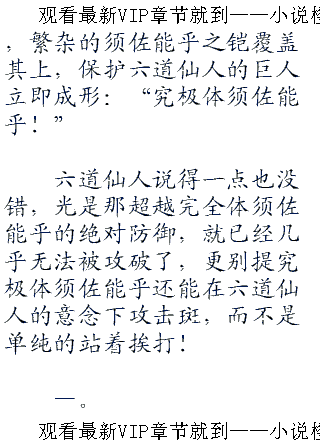 观看最新VIP章节就到——小说
，繁杂的须佐能乎之铠覆盖
其上，保护六道仙人的巨人
立即成形：“究极体须佐能
乎！”
六道仙人说得一点也没
错，光是那超越完全体须佐
能乎的绝对防御，就已经几
乎无法被攻破了，更别提究
极体须佐能乎还能在六道仙
人的意念下攻击斑，而不是
单纯的站着挨打！
一。
观看最新VIP章节就到——小说